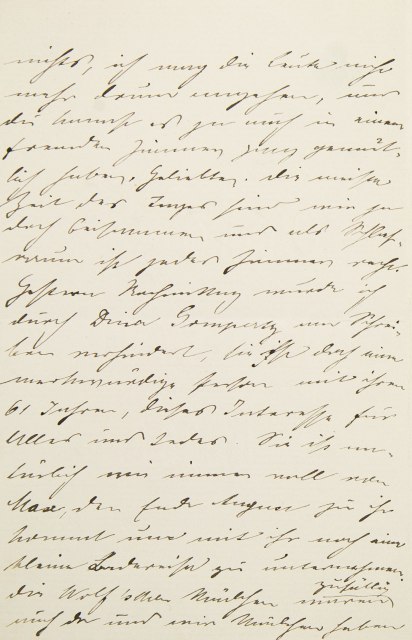 nichts, ich mag die Leute nicht
mehr drum angehen, und
du kannst es ja auch in einem
fremden Zimmer ganz gemüt-
lich haben, Geliebter. Die meiste
Zeit des Tages sind wir ja
doch beisammen und als Schlaf-
raum ist jedes Zimmer recht.
Gestern Nachmittag wurde ich
durch Dina Gomperz am Schrei-
ben verhindert, sie ist doch eine
merkwürdige Person mit ihren
61 Jahren, dieses Interesse für
Alles und Jedes. Sie ist na-
türlich wie immer voll von
Max, der Ende August zu ihr
kommt um mit ihr noch eine
kleine Badereise zu unternehmen.
zufällig
die Wolf'schen Mädchen waren
auch da und wir Mädchen haben